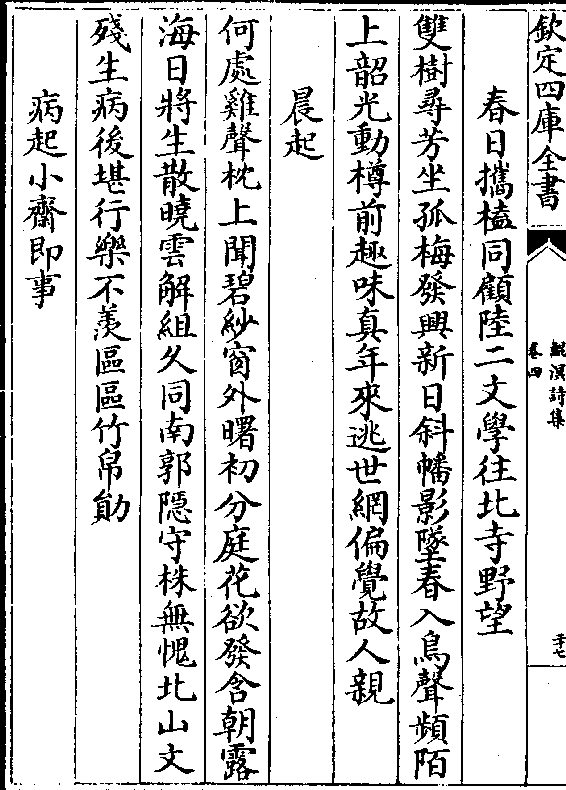 欽定四庫全書
鯤溟詩集
卷四
二十七
春日攜榼同顧陸二文學往北寺野望
雙樹尋芳坐孤梅發興新日斜幡影墜春入鳥聲頻陌
上韶光動樽前趣味真年來逃世網偏覺故人親
晨起
何處雞聲枕上聞碧紗窗外曙初分庭花欲發含朝露
海日將生散曉雲解組久同南郭隱守株無愧北山文
殘生病後堪行樂不羨區區竹帛勛
病起小齋即事